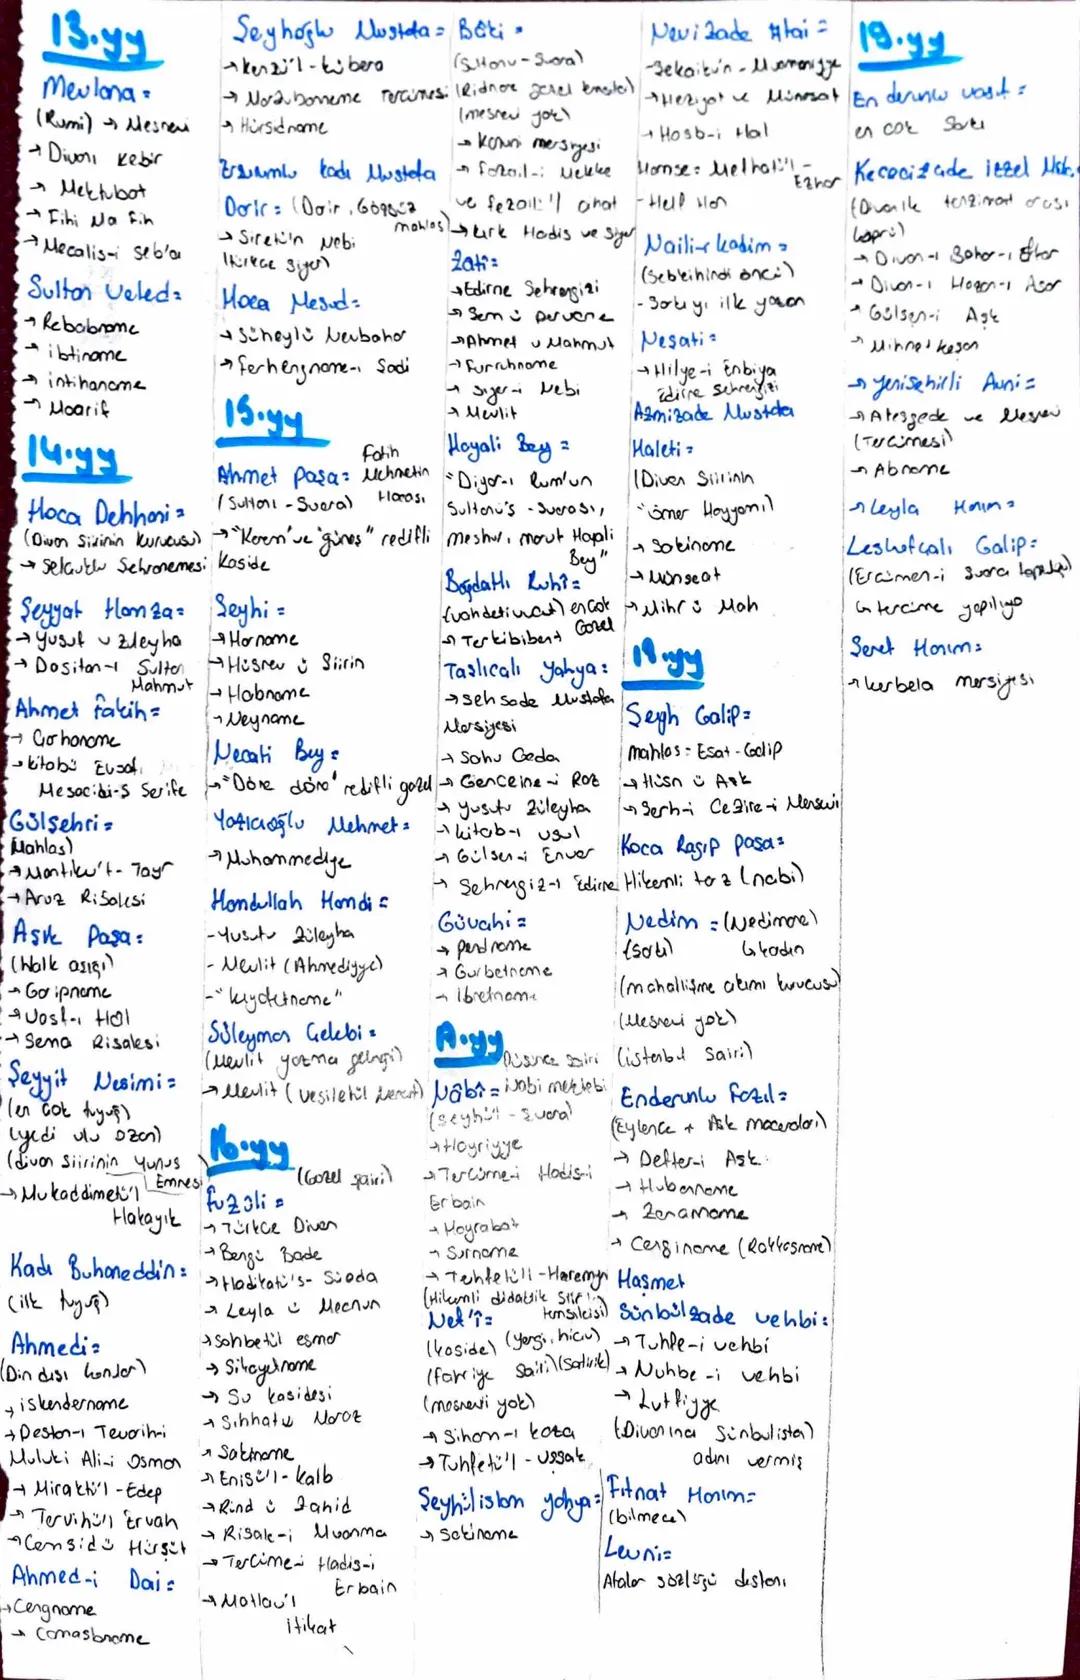 13.yy
Mevlana =
(Rumi) → Mesnevi
→ Divanı Kebir
→ Mektubat
→ Fihi Ma Fih
→ Mecalis-i Seb'a
Sultan Veled =
→ Rebabname
→ ibtiname
→ intihaname
→ Maarif
14.yy
Hoca Dehhani =
(Divan Şiirinin kurucusu)
→ Selçuklu Şehnamesi
Şeyyat Hamza =
→ Yusuf u Züleyha
→ Dasitan-ı Sultan
Mahmut
Ahmet Fakih =
→ Çarhname
→ kitabü Evsaf
Mesacidi-Ş Şerife
Gülşehri =
(Mahlas)
→ Mantıku't-Tayr
→ Aruz Risalesi
Aşık Paşa =
(Halk aşığı)
→ Garipname
→ Vasf-ı Hal
→ Sema Risalesi
Seyyit Nesimi =
(en çok tuyuğ)
(yedi ulu ozan)
(divan şiirinin Yunus
Emresi)
→ Mukaddimetü'l
Hakayık
Kadı Burhaneddin =
(ilk tuyuğ)
Ahmedi =
(Din dışı konular)
→ iskendername
→ Destan-ı Tevarih-i
Müluki Ali-i Osman
→ Miraktü'l-Edep
→ Tervihü'l Ervah
→ Cemşidü Hürşit
Ahmed-i Dai =
→ Çengname
→ Camasbname
Şeyhoğlu Mustafa =
→ Kenzü'l-kübera
→ Marzubanname Tercümesi
→ Hürşidname
Erzurumlu Kadı Mustafa
Darir = (Darir, Gözsüz
mahlas)
→ Siretü'n Nebi
(türkçe siyer)
Hoca Mesud =
→ Süheylü Nevbahar
→ Ferhengname-i Sadi
15.yy
Ahmet Paşa = Fatih Mehmetin Hocası
(Sultanı-Şuara)
→ "Kerem" ve "güneş" redifli
kaside
Şeyhi =
→ Harname
→ Hüsrev ü Şirin
→ Habname
→ Neyname
Necati Bey =
→ "Döne döne" redifli gazel
Yazıcıoğlu Mehmet =
→ Muhammediye
Hamdullah Hamdi =
- Yusufu Züleyha
- Mevlit (Ahmediyye)
- "kıyafetname"
Süleyman Çelebi =
(Mevlit yazma geleneği)
→ Mevlit (vesiletül necat)
16.yy
(Gazel şairi)
Fuzuli =
→ Türkçe Divan
→ Bengü Bade
→ Hadikatü's-Süada
→ Leyla ü Mecnun
→ Sohbetül esmar
→ Şikayetname
→ Su kasidesi
→ Sıhhatü Maraz
→ Sakiname
→ Enisü'l-kalb
→ Rind ü Zahid
→ Risale-i Muamma
→ Tercüme-i Hadis-i
Erbain
→ Matlau'l
itikat
Baki =
(Sultanu-Şuara)
(Ridnane gazel temsilci)
(mesnevi yok)
→ Kanuni mersiyesi
→ Fezail-i Mekke
ve fezail'l cihat
→ kırk Hadis ve Siyer
Zati =
→ Edirne Şehrengizi
→ Şem ü pervane
→ Ahmet u Mahmut
→ Ferruhname
→ Siyer-i Nebi
→ Mevlit
Hayali Bey =
"Diyar-ı Rum'un
Sultanü's-Şuarası,
meshur, maruf Hayali
Bey"
Bağdatlı Ruhi =
(vahdetivücut) en çok
gazel
→ Terkibibent
Taşlıcalı Yahya =
→ Şehzade Mustafa
Mersiyesi
→ Şahu Geda
→ Gencine-i Raz
→ Yusufu Züleyha
→ kitab-ı usul
→ Gülşen-i Envar
→ Şehrengiz-ı Edirne
Güvahi =
→ pendname
→ Gurbetname
→ ibretname
17.yy
Düşünce şairi
Nâbi = Nabi mektebi
(Şeyhü'l-Şuara)
→ Hayriyye
→ Tercüme-i Hadis-i
Erbain
→ Hayrabat
→ Surname
→ Tuhfetü'l-Haremeyn
(Hikemli didaktik şiir
temsilcisi)
Nef'i =
(kaside) (yergi, hiciv)
(fahriye şairi) (Satirik)
(mesnevi yok)
→ Siham-ı kaza
→ Tuhfetü'l-Uşşak
Şeyhülislam Yahya =
→ Sakiname
Nevizade Atai =
-Şekaiku'n-Numaniyye
→ Heziyat ve Münşeat
→ Hasb-i Hal
Hamse = Nefhatü'l-
Ezhar
- Heft Han
Naili-i kadim =
(Sebkihindi öncü)
- Şarkıyı ilk yazan
Neşati =
→ Hilye-i Enbiya
Edirne Şehrengizi
Azmizade Mustafa
Haleti =
(Divan Şiirinin
"ömer Hayyamı")
→ Sakiname
→ Münşeat
→ Mihr ü Mah
18.yy
Şeyh Galip =
mahlas = Esat-Galip
→ Hüsn ü Aşk
→ Şerh-i Cezire-i Mesnevi
Koca Ragıp paşa =
Hikemli tarz (nabi)
Nedim = (Nedimane)
(Şarkı) ↳ kadın
(mahallileşme akımı kurucusu)
(Mesnevi yok)
(istanbul şairi)
Enderunlu Fazıl =
(Eylence + Aşk maceraları)
→ Defter-i Aşk
→ Hubanname
→ Zenanname
→ Çenginame (Rakkasname)
Haşmet
Sünbülzade vehbi =
→ Tuhfe-i vehbi
→ Nuhbe-i vehbi
→ Lutfiyye
(Divanına Sünbülistan)
adını vermiş
Fıtnat Hanım =
(bilmece)
Levni =
Atalar sözlüğü destanı
19.yy
Enderunlu vasıf =
en çok Şarkı
Kececizade izzet Mol.
(Divanlık tanzimat arası
köprü)
→ Divan-ı Bahar-ı Efkar
→ Divan-ı Hazan-ı Asar
→ Gülşen-i Aşk
→ Mihnet keşan
→ Yenişehirli Avni =
→ Ateşgede ve Mesnevi
(Tercümesi)
→ Abname
→ Leyla Hanım =
Leskofçalı Galip =
(Encümen-i Şuara topluluğu)
↳ tercüme yapılıyo
Şeref Hanım =
→ kerbela mersiyesi